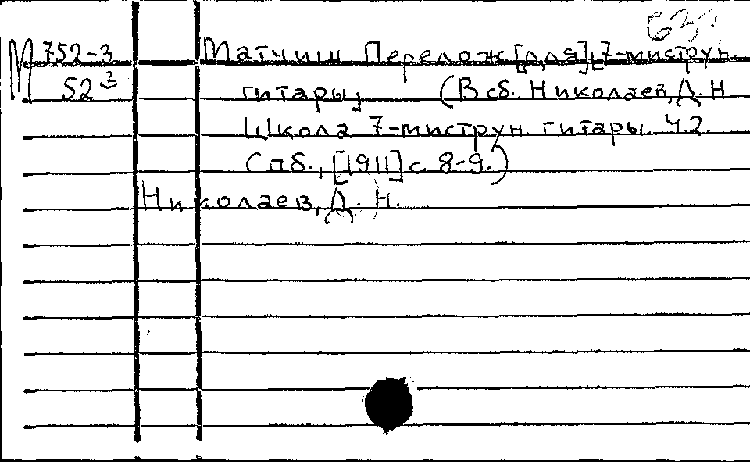 М 752-3 Матчиш Перелож[для] 7-миструн.
52 3 гитары; (В сб. Николаев, Д. Н
Школа 7-миструн. гитары. Ч.2.
Спб., [1911] с. 8-9.)
Николаев, Д. Н.